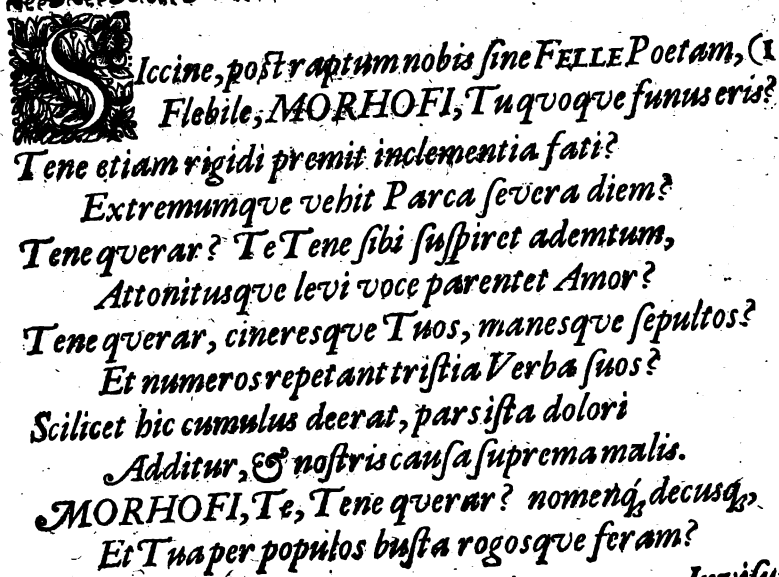 SIccine, post raptum nobis sine FELLE Poetam, (1
Flebile, MORHOFI, Tu qvoqve funus eris?
Tene etiam rigidi premit inclementia fati?
Extremumqve vehit Parca severa diem?
Tene qverar? Te Tene sibi suspiret ademtum,
Attonitusqve levi voce parentet Amor?
Tene qverar, cineresqve Tuos, manesqve sepultos?
Et numeros repetant tristia Verba suos?
Scilicet hic cumulus deerat, pars ista dolori
Additur, & nostris causa suprema malis.
MORHOFI, Te, Tene qverar? nomenq́; decusq́;,
Et Tua per populos busta rogosqve feram?